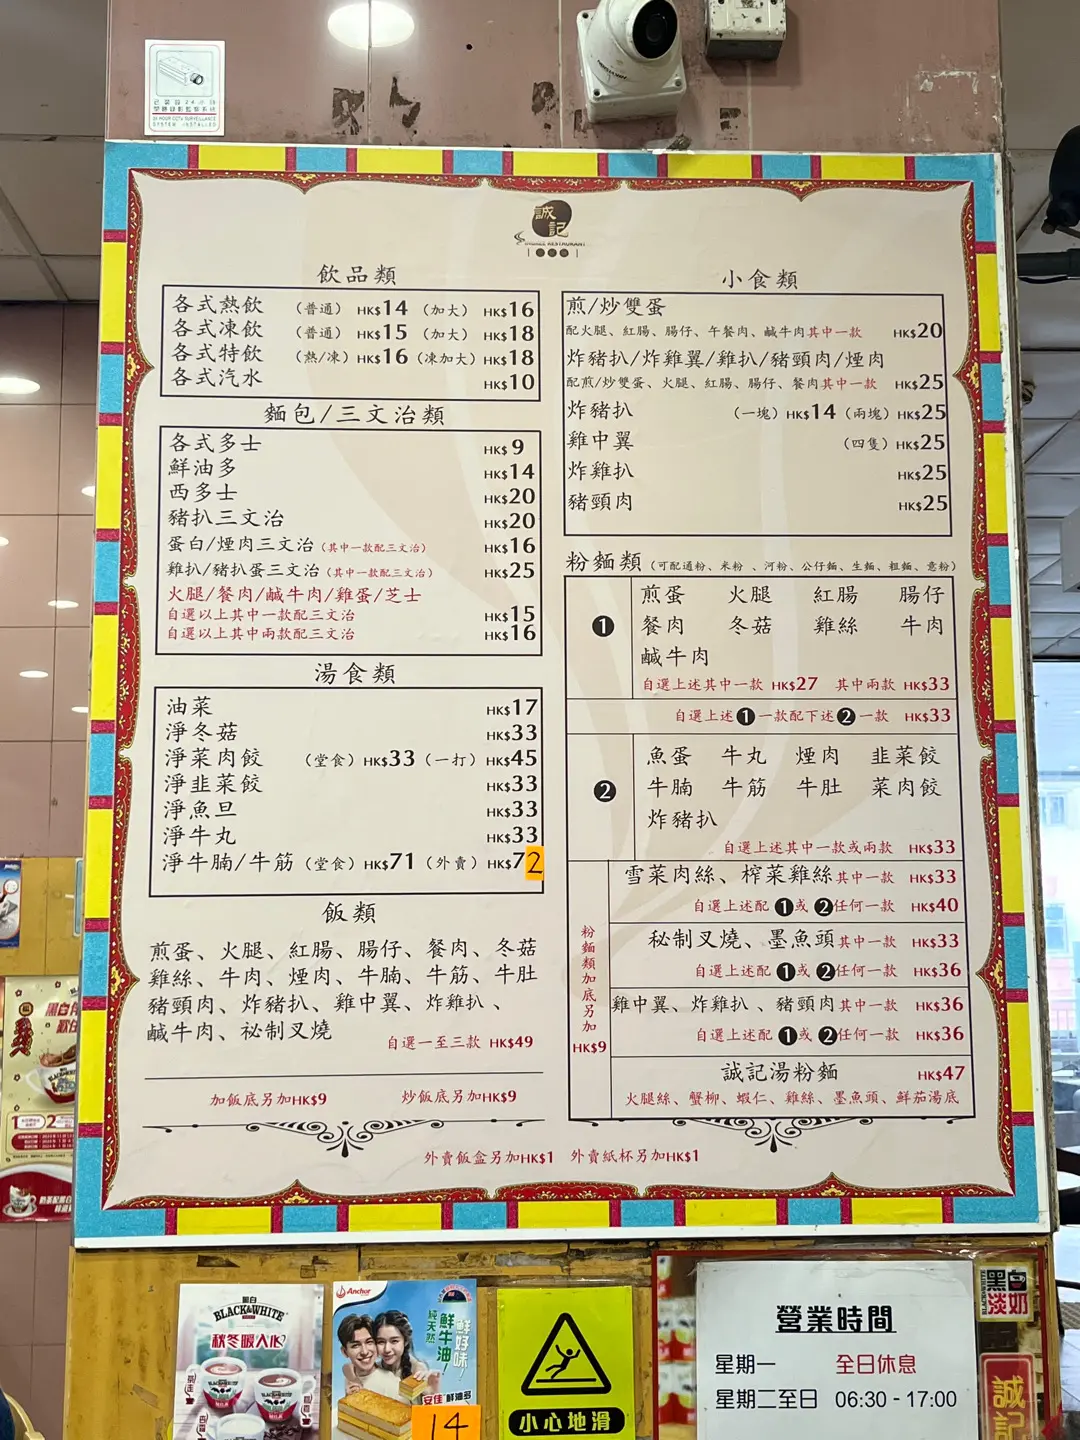 24 HOUR CCTV SURVEILLANCE
SYSTEM INSTALLED
誠記
飲品類
各式熱飲 (普通) HK$14 (加大) HK$16
各式凍飲 (普通) HK$15 (加大) HK$18
各式特飲 (熱/凍) HK$16 (凍加大) HK$18
各式汽水 HK$10
麵包/三文治類
各式多士 HK$9
鮮油多 HK$14
西多士 HK$20
豬扒三文治 HK$20
蛋白/煙肉三文治 (其中一款配三文治) HK$16
雞扒/豬扒蛋三文治 (其中一款配三文治) HK$25
火腿/餐肉/鹹牛肉/雞蛋/芝士
自選以上其中一款配三文治 HK$15
自選以上其中兩款配三文治 HK$16
湯食類
油菜 HK$17
淨冬菇 HK$33
淨菜肉餃 (堂食) HK$33 (一打) HK$45
淨韭菜餃 HK$33
淨魚旦 HK$33
淨牛丸 HK$33
淨牛腩/牛筋 (堂食) HK$71 (外賣) HK$72
飯類
煎蛋、火腿、紅腸、腸仔、餐肉、冬菇
雞絲、牛肉、煙肉、牛腩、牛筋、牛肚
豬頸肉、炸豬扒、雞中翼、炸雞扒、
鹹牛肉、祕制叉燒
自選一至三款 HK$49
加飯底另加HK$9 炒飯底另加HK$9
小食類
煎/炒雙蛋
配火腿、紅腸、腸仔、午餐肉、鹹牛肉其中一款 HK$20
炸豬扒/炸雞翼/雞扒/豬頸肉/煙肉
配煎/炒雙蛋、火腿、紅腸、腸仔、餐肉其中一款 HK$25
炸豬扒 (一塊) HK$14 (兩塊) HK$25
雞中翼 (四隻) HK$25
炸雞扒 HK$25
豬頸肉 HK$25
粉麵類 (可配通粉、米粉、河粉、公仔麵、生麵、粗麵、意粉)
1
煎蛋 火腿 紅腸 腸仔
餐肉 冬菇 雞絲 牛肉
鹹牛肉
自選上述其中一款 HK$27 其中兩款 HK$33
自選上述1一款配下述2一款 HK$33
2
魚蛋 牛丸 煙肉 韭菜餃
牛腩 牛筋 牛肚 菜肉餃
炸豬扒
自選上述其中一款或兩款 HK$33
粉麵類加底另加
HK$9
雪菜肉絲、榨菜雞絲其中一款 HK$33
自選上述配1或2任何一款 HK$40
秘制叉燒、墨魚頭其中一款 HK$33
自選上述配1或2任何一款 HK$36
雞中翼、炸雞扒、豬頸肉其中一款 HK$36
自選上述配1或2任何一款 HK$36
誠記湯粉麵 HK$47
火腿絲、蟹柳、蝦仁、雞絲、墨魚頭、鮮茄湯底
外賣飯盒另加HK$1 外賣紙杯另加HK$1
黑白
BLACK&WHITE
秋冬暖入心
Anchor
純天然
鮮牛油
鮮好味
安佳 鮮油多
14
小心地滑
營業時間
星期一 全日休息
星期二至日 06:30 - 17:00
黑白淡奶
誠記